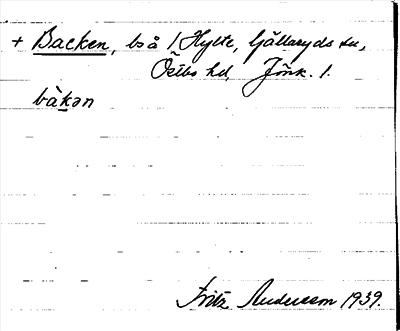 + Backen, bs å 1 Hylte, Gällaryds sn,
Östbo hd, Jönk. l.
bàkən
Fritz Andersson 1939.